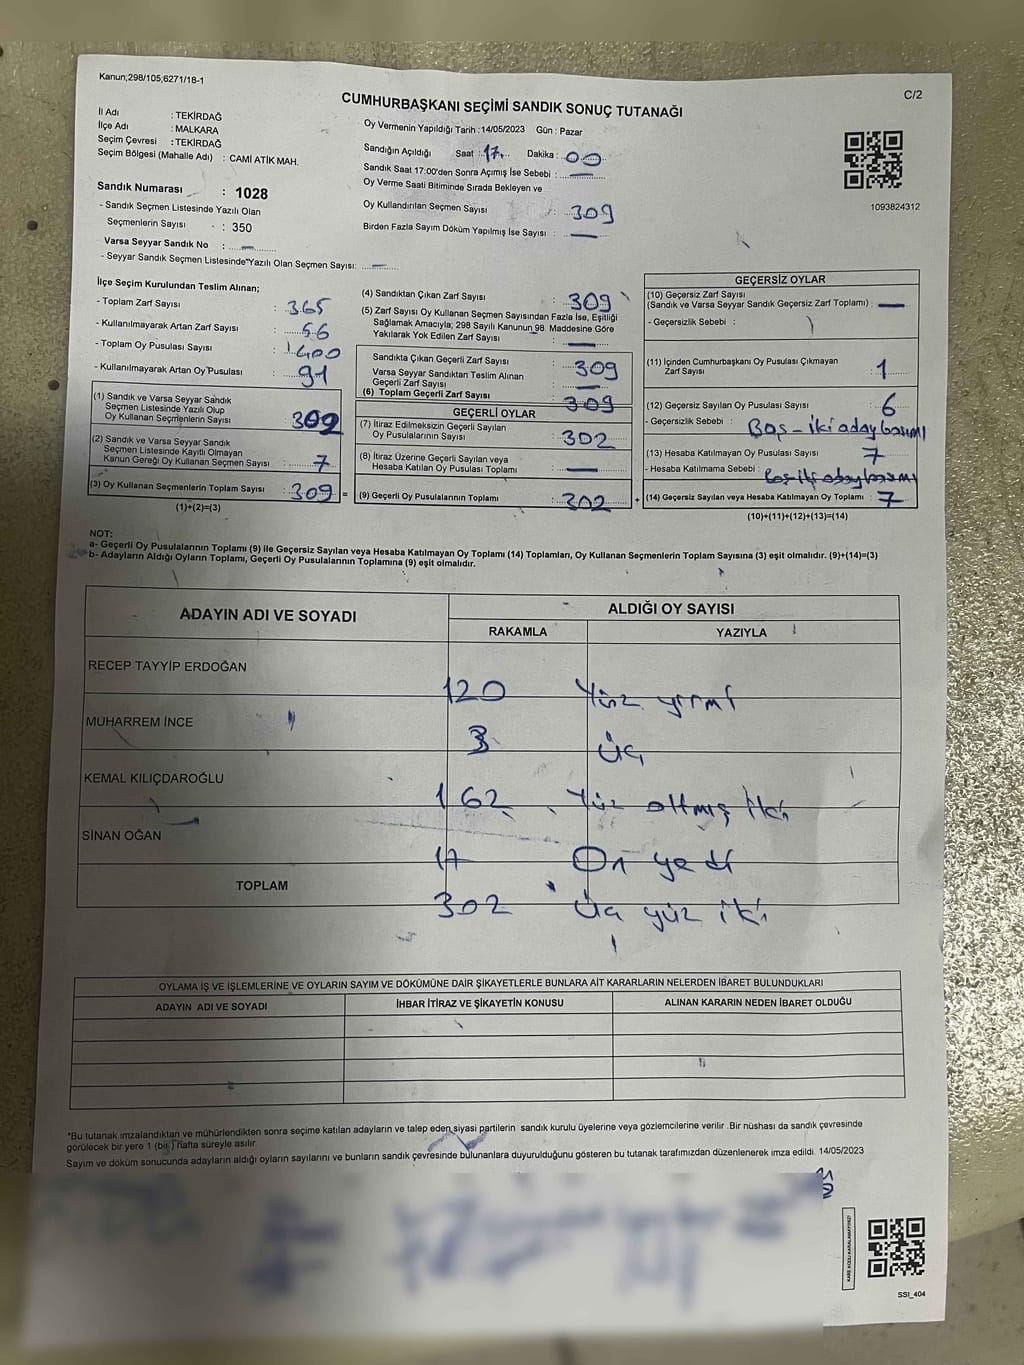 Kanun;298/105,6271/18-1
C/2
CUMHURBAŞKANI SEÇİMİ SANDIK SONUÇ TUTANAĞI
İl Adı : TEKİRDAĞ
İlçe Adı : MALKARA
Seçim Çevresi : TEKİRDAĞ
Seçim Bölgesi (Mahalle Adı) : CAMİ ATİK MAH.
Sandık Numarası : 1028
- Sandık Seçmen Listesinde Yazılı Olan
Seçmenlerin Sayısı : 350
Varsa Seyyar Sandık No : —
- Seyyar Sandık Seçmen Listesinde Yazılı Olan Seçmen Sayısı: —
Oy Vermenin Yapıldığı Tarih :14/05/2023 Gün : Pazar
Sandığın Açıldığı Saat : 17 Dakika : 00
Sandık Saat 17:00'den Sonra Açımış İse Sebebi : —
Oy Verme Saati Bitiminde Sırada Bekleyen ve
Oy Kullandırılan Seçmen Sayısı : 309
Birden Fazla Sayım Döküm Yapılmış İse Sayısı : —
1093824312
İlçe Seçim Kurulundan Teslim Alınan;
- Toplam Zarf Sayısı : 365
- Kullanılmayarak Artan Zarf Sayısı : 56
- Toplam Oy Pusulası Sayısı : 400
- Kullanılmayarak Artan Oy Pusulası : 91
(1) Sandık ve Varsa Seyyar Sandık
Seçmen Listesinde Yazılı Olup
Oy Kullanan Seçmenlerin Sayısı : 302
(2) Sandık ve Varsa Seyyar Sandık
Seçmen Listesinde Kayıtlı Olmayan
Kanun Gereği Oy Kullanan Seçmen Sayısı : 7
(3) Oy Kullanan Seçmenlerin Toplam Sayısı : 309 =
(1)+(2)=(3)
(4) Sandıktan Çıkan Zarf Sayısı : 309
(5) Zarf Sayısı Oy Kullanan Seçmen Sayısından Fazla İse, Eşitliği
Sağlamak Amacıyla; 298 Sayılı Kanunun 98. Maddesine Göre
Yakılarak Yok Edilen Zarf Sayısı : —
Sandıkta Çıkan Geçerli Zarf Sayısı : 309
Varsa Seyyar Sandıktan Teslim Alınan
Geçerli Zarf Sayısı : —
(6) Toplam Geçerli Zarf Sayısı : 309
GEÇERLİ OYLAR
(7) İtiraz Edilmeksizin Geçerli Sayılan
Oy Pusulalarının Sayısı : 302
(8) İtiraz Üzerine Geçerli Sayılan veya
Hesaba Katılan Oy Pusulası Toplamı : —
(9) Geçerli Oy Pusulalarının Toplamı : 302 +
GEÇERSİZ OYLAR
(10) Geçersiz Zarf Sayısı
(Sandık ve Varsa Seyyar Sandık Geçersiz Zarf Toplamı) : —
- Geçersizlik Sebebi :
(11) İçinden Cumhurbaşkanı Oy Pusulası Çıkmayan
Zarf Sayısı : 1
(12) Geçersiz Sayılan Oy Pusulası Sayısı : 6
- Geçersizlik Sebebi : Boş - iki aday basımı
(13) Hesaba Katılmayan Oy Pusulası Sayısı : 7
- Hesaba Katılmama Sebebi : boş iki aday basımı
(14) Geçersiz Sayılan veya Hesaba Katılmayan Oy Toplamı : 7
(10)+(11)+(12)+(13)=(14)
NOT:
a- Geçerli Oy Pusulalarının Toplamı (9) ile Geçersiz Sayılan veya Hesaba Katılmayan Oy Toplamı (14) Toplamları, Oy Kullanan Seçmenlerin Toplam Sayısına (3) eşit olmalıdır. (9)+(14)=(3)
b- Adayların Aldığı Oyların Toplamı, Geçerli Oy Pusulalarının Toplamına (9) eşit olmalıdır.
ADAYIN ADI VE SOYADI
ALDIĞI OY SAYISI
RAKAMLA YAZIYLA
RECEP TAYYİP ERDOĞAN 120 Yüz yirmi
MUHARREM İNCE 3 üç
KEMAL KILIÇDAROĞLU 162 Yüz altmış iki
SİNAN OĞAN 17 On yedi
TOPLAM 302 üç yüz iki
OYLAMA İŞ VE İŞLEMLERİNE VE OYLARIN SAYIM VE DÖKÜMÜNE DAİR ŞİKAYETLERLE BUNLARA AİT KARARLARIN NELERDEN İBARET BULUNDUKLARI
ADAYIN ADI VE SOYADI İHBAR İTİRAZ VE ŞİKAYETİN KONUSU ALINAN KARARIN NEDEN İBARET OLDUĞU
*Bu tutanak imzalandıktan ve mühürlendikten sonra seçime katılan adayların ve talep eden siyasi partilerin sandık kurulu üyelerine veya gözlemcilerine verilir .Bir nüshası da sandık çevresinde
görülecek bir yere 1 (bir ) hafta süreyle asılır.
Sayım ve döküm sonucunda adayların aldığı oyların sayılarını ve bunların sandık çevresinde bulunanlara duyurulduğunu gösteren bu tutanak tarafımızdan düzenlenerek imza edildi. 14/05/2023
SSI_404